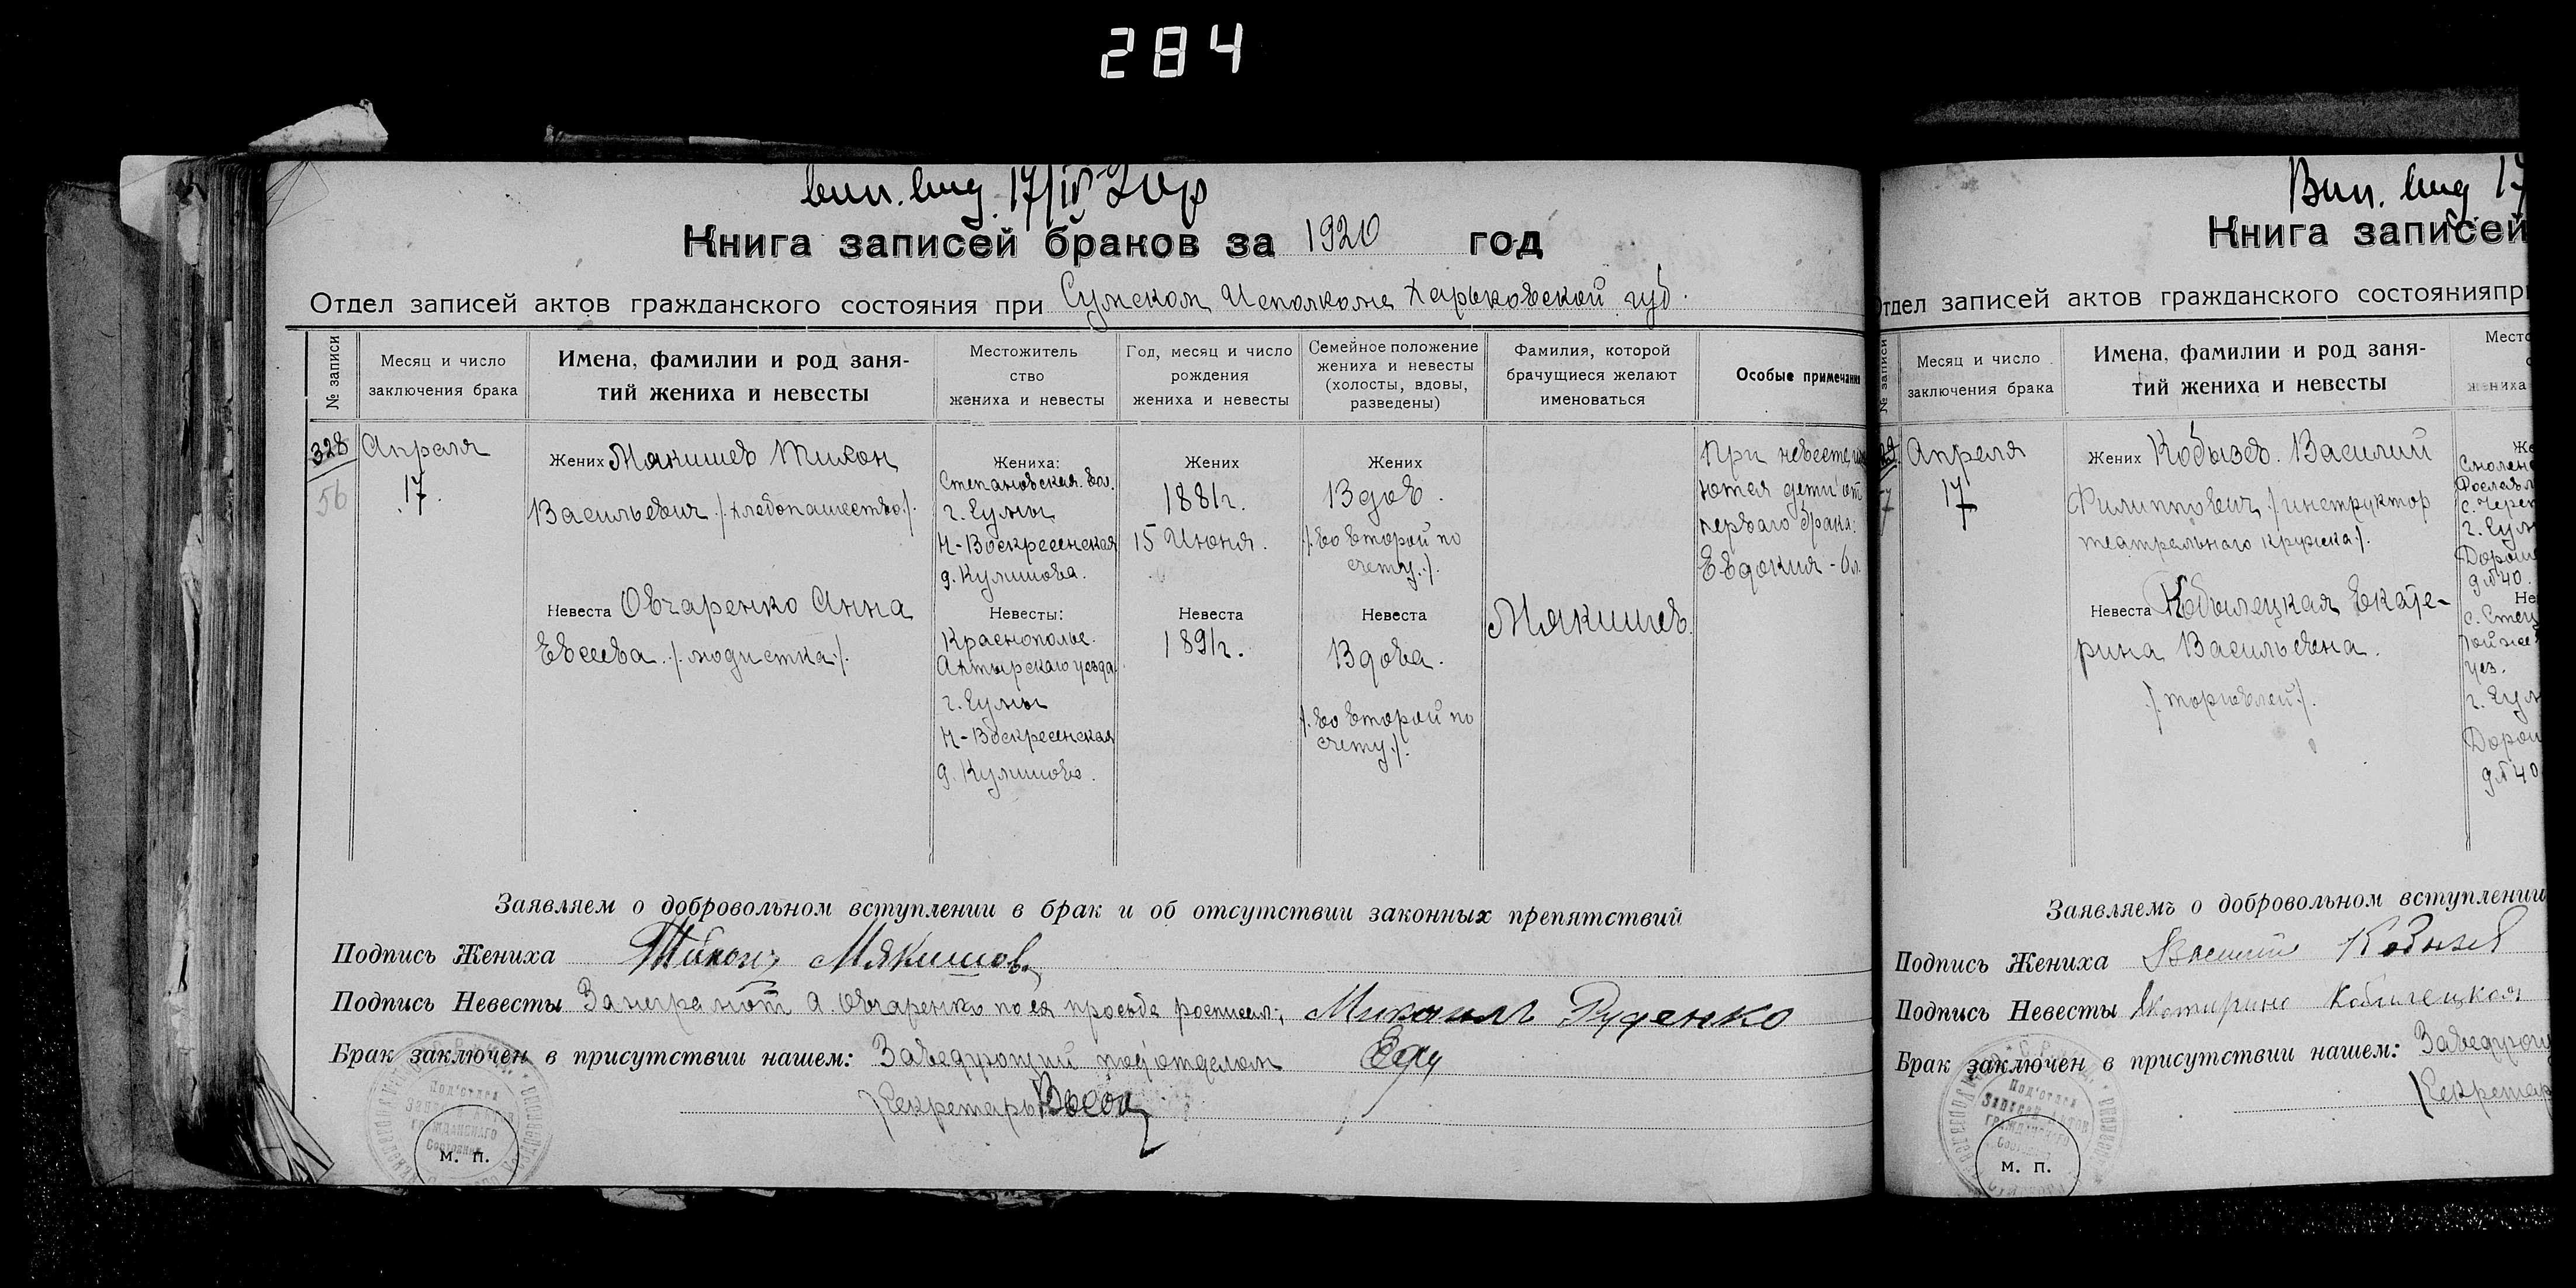 284
вып. вид. 17/IV 20 г.
Книга записей браков за 1920 год
Отдел записей актов гражданского состояния при Сумском Исполкоме Харьковской губ.
№ записи
Месяц и число
заключения брака
Имена, фамилии и род заня-
тий жениха и невесты
Местожитель
ство
жениха и невесты
Год, месяц и число
рождения
жениха и невесты
Семейное положение
жениха и невесты
(холосты, вдовы,
разведены)
Фамилия, которой
брачущиеся желают
именоваться
Особые примечани
328
56
Апреля
17.
Жених Мякишев Тихон
Васильевич /хлебопашество/.
Невеста Овчаренко Анна
Евсеева ./модистка/.
Жениха:
Степановская вол.
г. Сумы
Н-Воскресенская
д. Кулишова.
Невесты:
Краснополье.
Ахтырскаго уезда
г. Сумы
Н-Воскресенская
д. Кулишова.
Жених
1881г.
15 Июня.
Невеста
1891г.
Жених
Вдов.
/.во второй по
счету./.
Невеста
Вдова.
/.во второй по
счету/.
Мякишев.
При невесте, им
ются дети от
перваго брака:
Евдокия - 6л.
Заявляем о добровольном вступлении в брак и об отсутствии законных препятствий
Подпись Жениха Тихонъ Мякишов
Подпись Невесты За неграмот А. Овчаренко по её просьбе росписал:, Михаилъ Руденко
Брак заключен в присутствии нашем: Заведующий под'отделом
Секретарь
Под'отдел
Записи Актов
Гражданскаго
Состояния
м. п.
Вып. вид 17
Книга записей
Отдел записей актов гражданского состоянияпри
№ записи
Месяц и число
заключения брака
Имена, фамилии и род заня-
тий жениха и невесты
Место
жениха
Апреля
17
Жених Кобызев. Василий
Филиппович /инструктор
театральнаго кружка/.
Невеста Кобылецкая Екате-
рина Васильевна.
/.торговлей/.
г. Сум
д№40.
г. Сум
д№40
Заявляемъ о добровольном вступлении
Подпись Жениха Василий Кобызев
Подпись Невесты Екатерина Кобылецкая
Брак заключен в присутствии нашем: Заведующ
Секретар
Под'отдел
Записей Актов
Гражданскаго
Состояния
м. п.